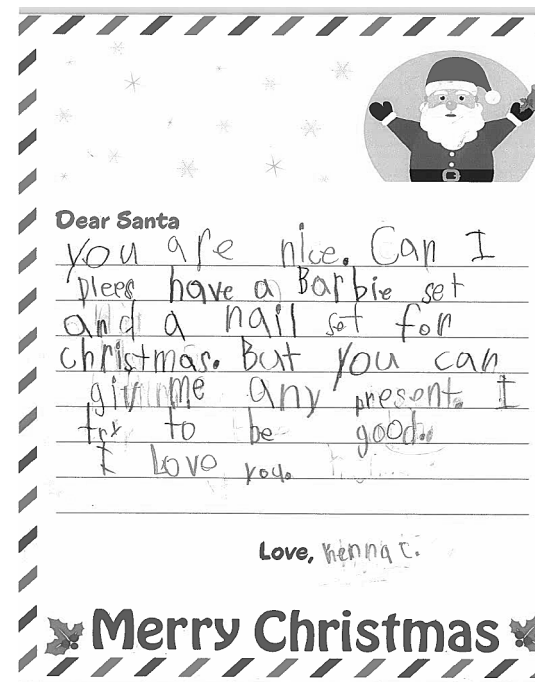 Dear Santa
you are nice. Can I
plees have a Barbie set
and a nail set for
christmas. But you can
giv me any present. I
try to be good.
I Love you.
Love, Kenna C.
Merry Christmas